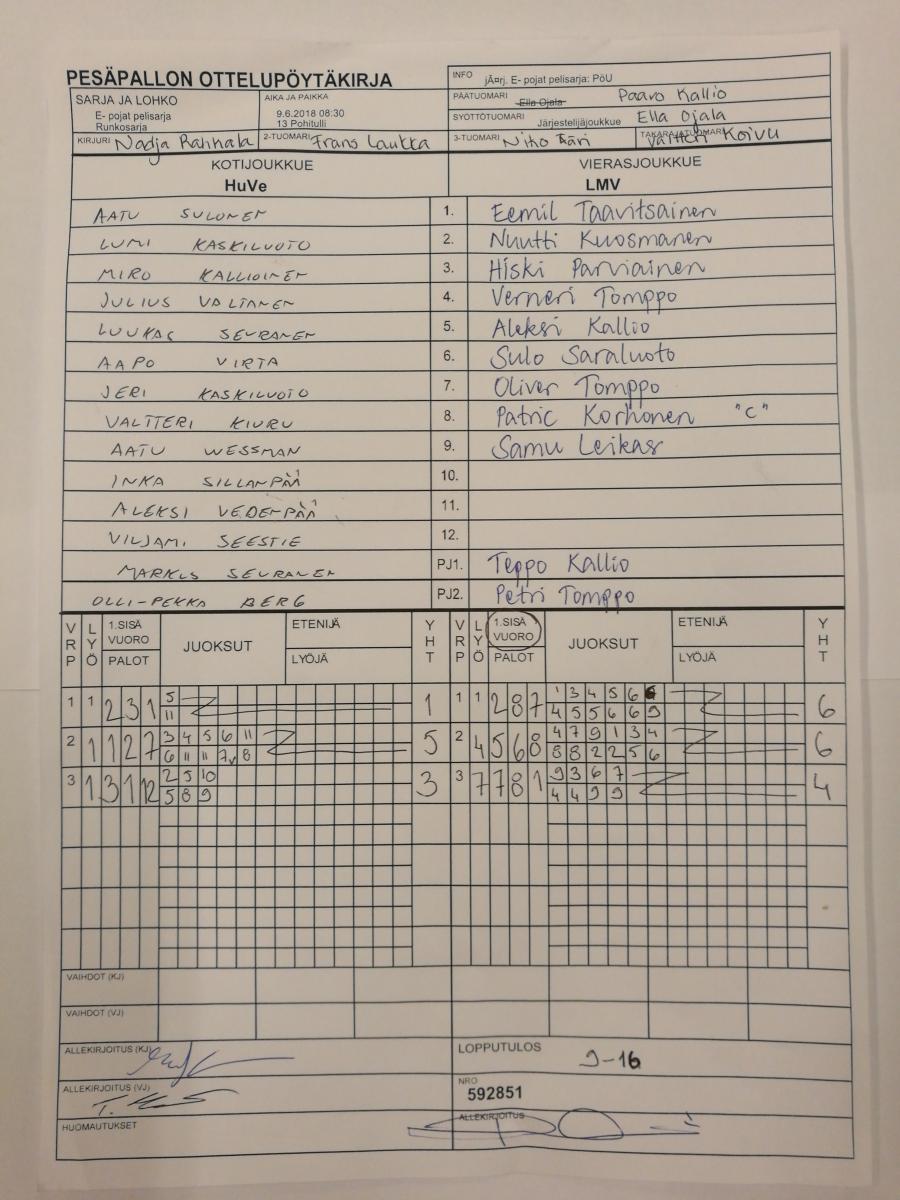 PESÄPALLON OTTELUPÖYTÄKIRJA
INFO jÃ¤rj. E- pojat pelisarja: PöU
SARJA JA LOHKO
E- pojat pelisarja
Runkosarja
AIKA JA PAIKKA
9.6.2018 08:30
13 Pohitulli
PÄÄTUOMARI Ella Ojala Paavo Kallio
SYÖTTÖTUOMARI Järjestelijäjoukkue Ella Ojala
KIRJURI Nadja Rahhala 2-TUOMARI Frans Laukka 3-TUOMARI Niho Ääri TAKARAJATUOMARI Valtteri Koivu
KOTIJOUKKUE VIERASJOUKKUE
HuVe LMV
AATU SULONEN 1. Eemil Taavitsainen
LUMI KASKILUOTO 2. Nuutti Kuosmanen
MIRO KALLIOINEN 3. Hiski Parviainen
JULIUS VALTANEN 4. Verneri Tomppo
LUUKAS SEURANEN 5. Aleksi Kallio
AAPO VIRTA 6. Sulo Saraluoto
JERI KASKILUOTO 7. Oliver Tomppo
VALTTERI KIURU 8. Patric Korhonen "C"
AATU WESSMAN 9. Samu Leikas
INKA SILLANPÄÄ 10.
ALEKSI VEDENPÄÄ 11.
VILJAMI SEESTIE 12.
MARKUS SEURANEN PJ1. Teppo Kallio
OLLI-PEKKA BERG PJ2. Petri Tomppo
VRP LYÖ 1.SISÄ VUORO PALOT JUOKSUT ETENIJÄ LYÖJÄ YHT VRP LYÖ 1.SISÄ VUORO PALOT JUOKSUT ETENIJÄ LYÖJÄ YHT
1 1 2 3 1 5 1 1 1 2 8 7 1 3 4 5 6 6
11 4 5 5 6 6 9
2 1 1 2 7 3 4 5 6 11 5 2 4 5 6 8 4 7 9 1 3 4 6
6 11 11 7 8 8 8 2 2 5 6
3 1 3 1 12 2 5 10 3 3 7 7 8 1 9 3 6 7 4
5 8 9 4 4 9 9
VAIHDOT (KJ)
VAIHDOT (VJ)
ALLEKIRJOITUS (KJ) LOPPUTULOS 9-16
ALLEKIRJOITUS (VJ) NRO
592851
HUOMAUTUKSET ALLEKIRJOITUS